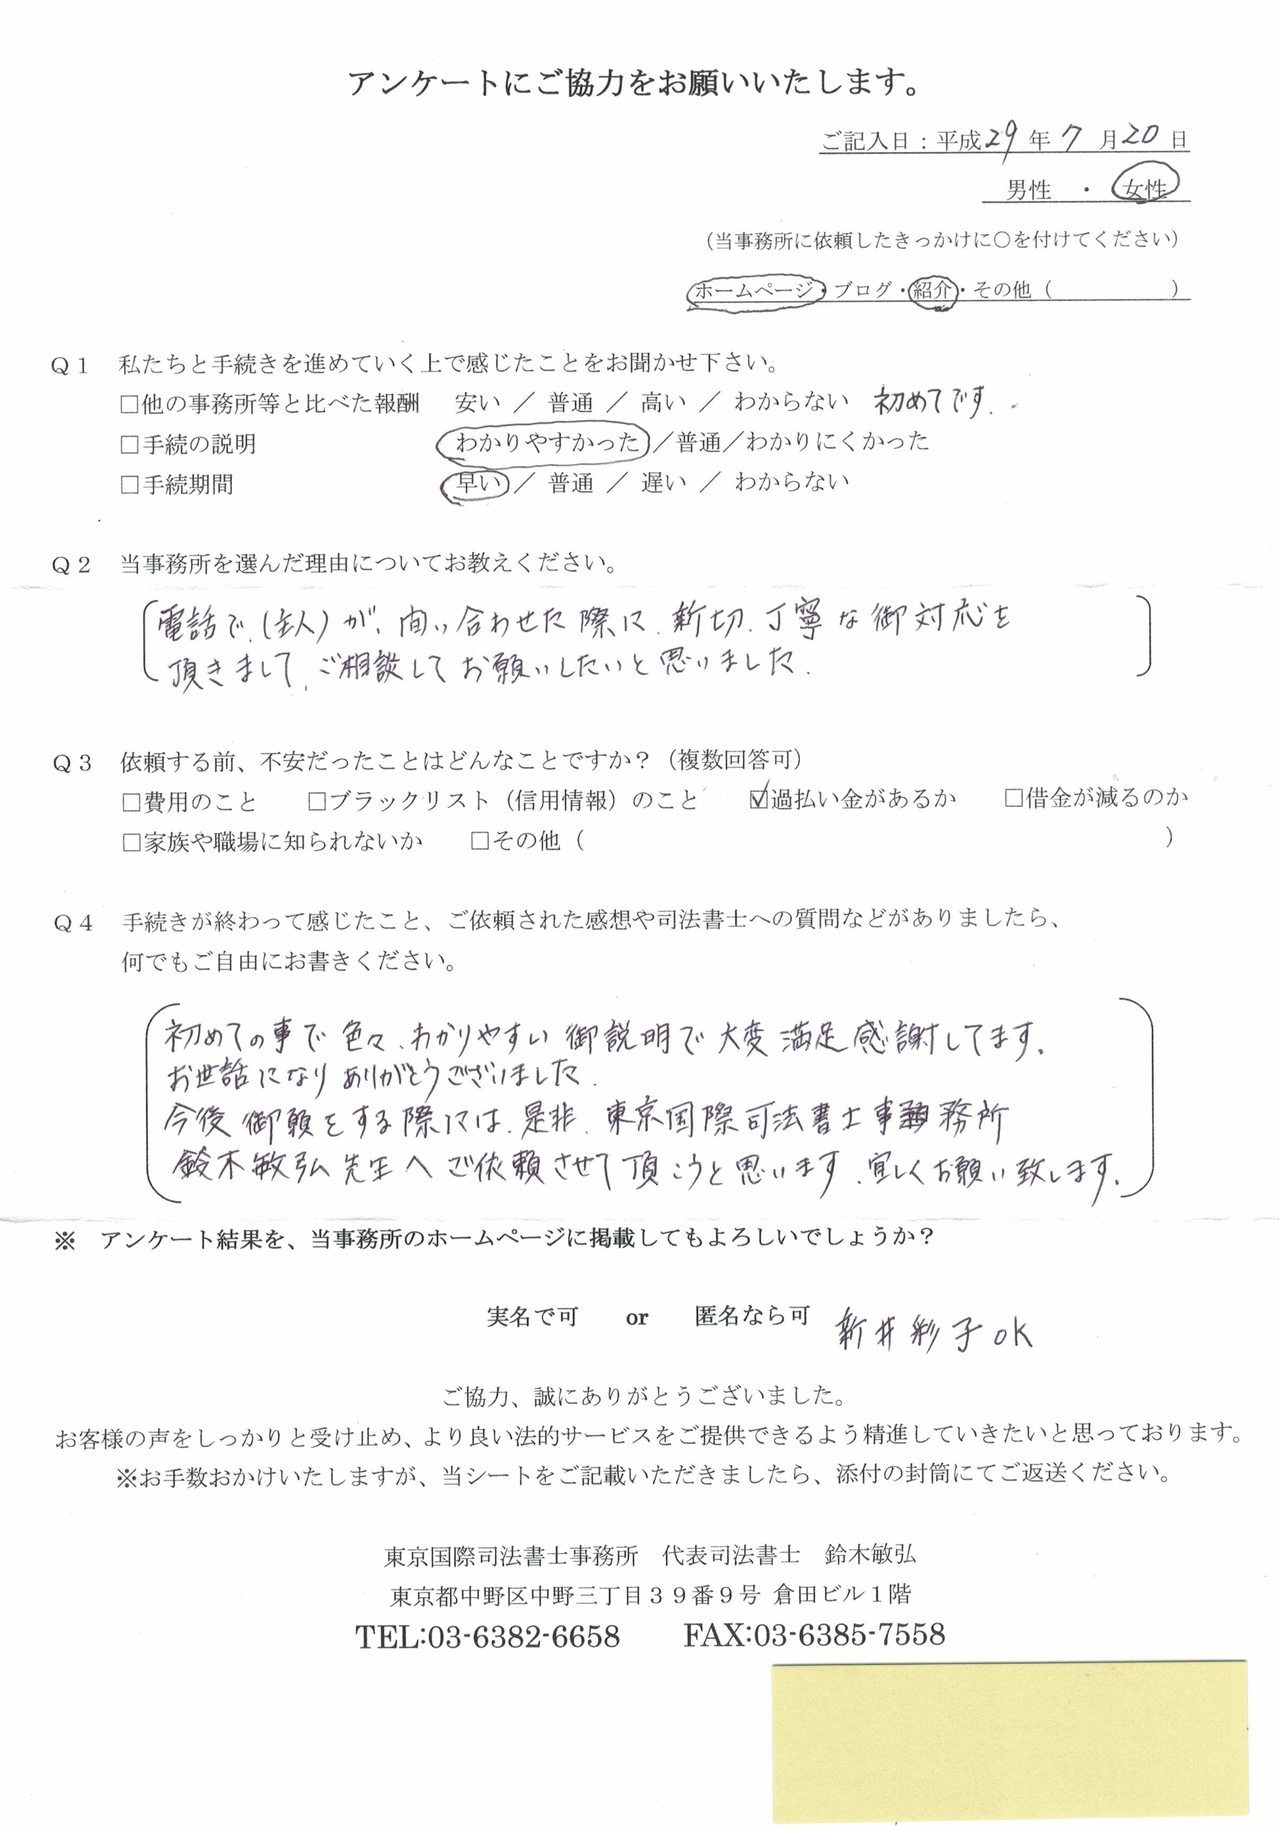 アンケートにご協力をお願いいたします。
ご記入日：平成29年7月20日
男性　・　女性
（当事務所に依頼したきっかけに○を付けてください）
ホームページ・ブログ・紹介・その他（　　　　　）
Ｑ１　私たちと手続きを進めていく上で感じたことをお聞かせ下さい。
□他の事務所等と比べた報酬　安い ／ 普通 ／ 高い ／ わからない　初めてです.
□手続の説明　わかりやすかった／普通／わかりにくかった
□手続期間　早い ／ 普通 ／ 遅い ／ わからない
Ｑ２　当事務所を選んだ理由についてお教えください。
電話で、(主人)が、問い合わせた際に、新切、丁寧な御対応を
頂きまして、ご相談してお願いしたいと思いました.
Ｑ３　依頼する前、不安だったことはどんなことですか？（複数回答可）
□費用のこと　□ブラックリスト（信用情報）のこと　☑過払い金があるか　□借金が減るのか
□家族や職場に知られないか　□その他（　　　　　）
Ｑ４　手続きが終わって感じたこと、ご依頼された感想や司法書士への質問などがありましたら、
何でもご自由にお書きください。
初めての事で色々、わかりやすい御説明で大変満足感謝してます.
お世話になりありがとうございました.
今後御願をする際には、是非、東京国際司法書士事務所
鈴木敏弘先生へご依頼させて頂こうと思います、宜しくお願い致します.
※　アンケート結果を、当事務所のホームページに掲載してもよろしいでしょうか？
実名で可　or　匿名なら可　新井彩子OK
ご協力、誠にありがとうございました。
お客様の声をしっかりと受け止め、より良い法的サービスをご提供できるよう精進していきたいと思っております。
※お手数おかけいたしますが、当シートをご記載いただきましたら、添付の封筒にてご返送ください。
東京国際司法書士事務所　代表司法書士　鈴木敏弘
東京都中野区中野三丁目３９番９号 倉田ビル１階
TEL:03-6382-6658　FAX:03-6385-7558